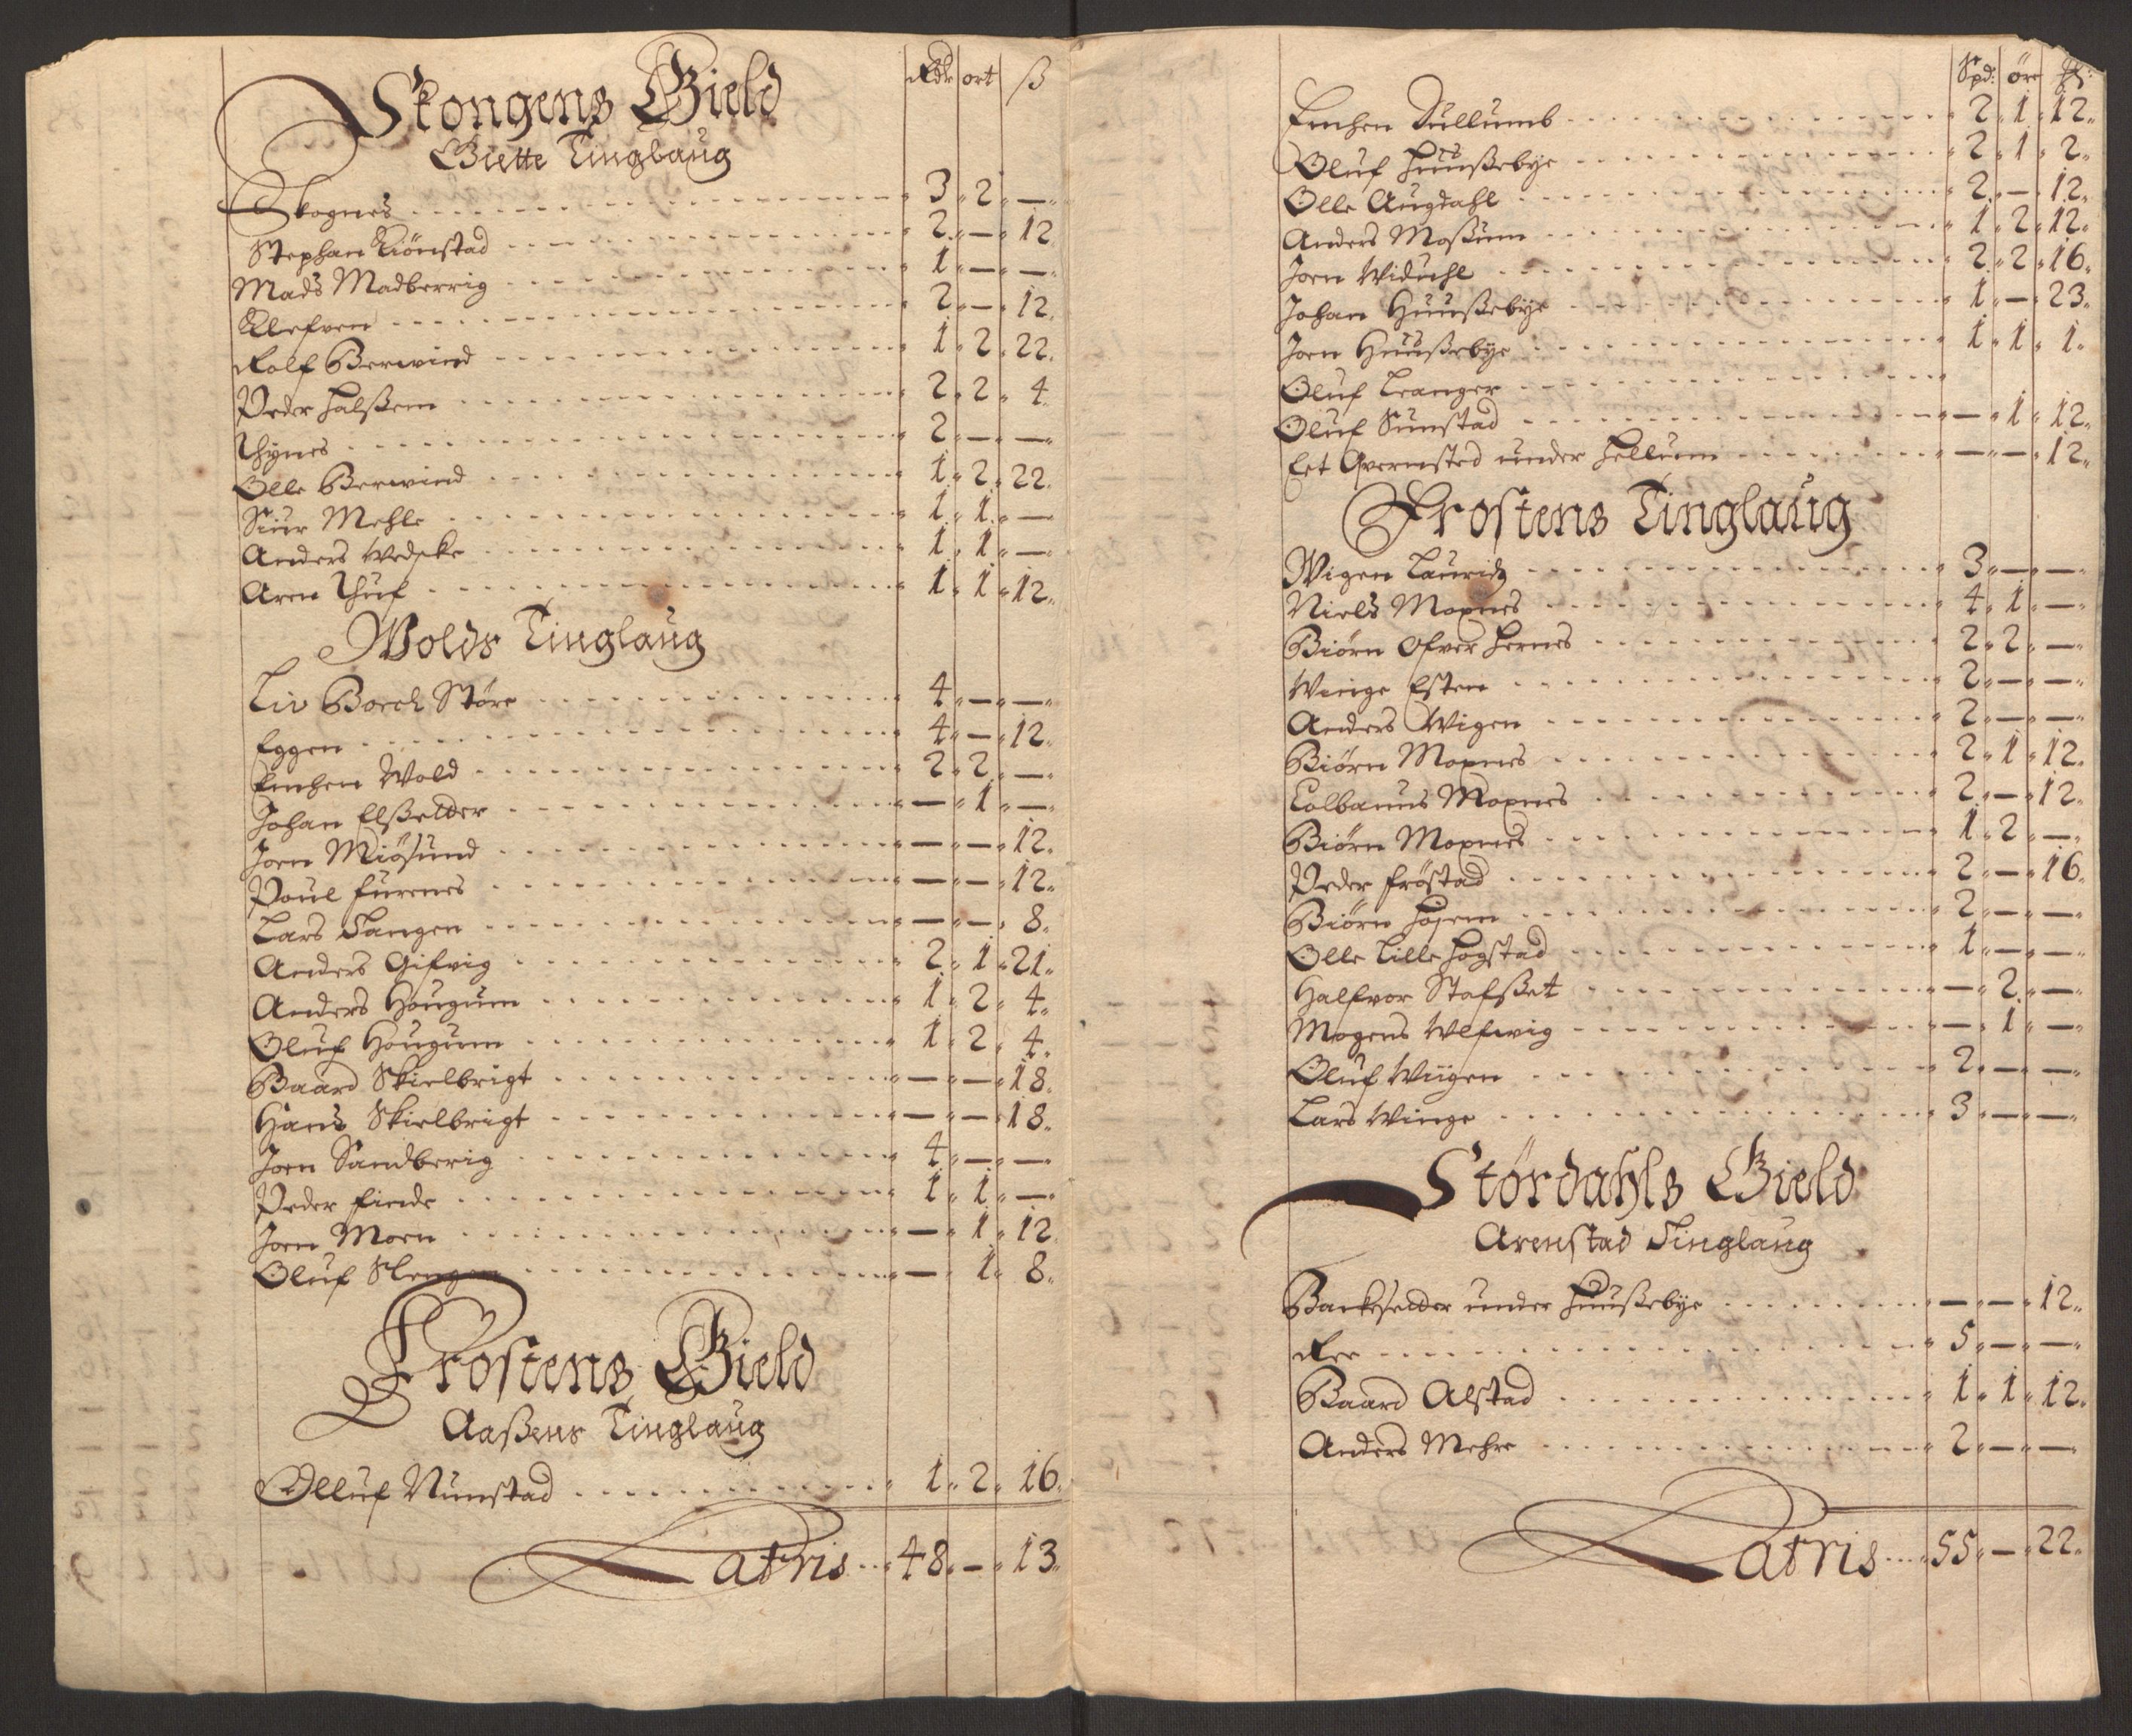 Rdr ort ß
Skongens Gield
Giette Tinglaug
Skognes 3 2 —
Stephan Kiönstad 2 — 12
Mads Madberrig 1 — —
Klefven 2 — 12
Rolf Berwind 1 2 22
Peder Halßem 2 2 4
Thynes 2 — —
Olle Berwind 1 2 22
Siur Mehle 1 1 —
Anders Wedeke 1 1 —
Aren Thuf 1 1 12
Wolds Tinglaug
Liv Borch Störe 4 — —
Eggen 4 — 12
Enchen Wold 2 2 —
Johan Elßetter — 1 —
Joen Miösund — — 12
Poul Furenes — — 12
Lars Tangen — — 8
Anders Gifvig 2 1 21
Anders Hougum 1 2 4
Oluf Hougum 1 2 4
Baard Skielbrigt — — 18
Hans Skielbrigt — — 18
Joen Sandberig 4 — —
Peder Finde 1 1 —
Joen Moen — 1 12
Oluf Slengen — 1 8
Frostens Gield
Aaßens Tinglaug
Olluf Nunstad 1 2 16
Latris 48 — 13
Spd: ört
Enchen Dullumb 2 1 12
Oluf Huußebye 2 1 2
Olle Augdahl 2 — 12
Anders Moßum 1 2 12
Joen Widuehl 2 2 16
Johan Huußebye 1 — 23
Joen Huußebye 1 1 1
Oluf Leanger
Oluf Sunstad — 1 12
Eet Qvernsted under Hellum — — 12
Frostens Tinglaug
Wigen Lauridz 3 — —
Niels Moxnes 4 1 —
Biörn Ofver Hernes 2 2 —
Winge Esten 2 — —
Anders Wigen 2 — —
Biörn Moxnes 2 1 12
Colbanus Moxnes 2 — 12
Biörn Moxnes 1 2 —
Peder Fröstad 2 — 16
Biörn Hojem 2 — —
Olle Lille Hogstad 1 — —
Halfvor Stafßet — 2 —
Mogens Ulfwig — 1 —
Oluf Wiigen 2 — —
Lars Winge 3 — —
Stördahls Gield
Arenstad Tinglaug
Barkesetter under Huußebye — — 12
Ree 5 — —
Baard Alstad 1 1 12
Anders Mehre 2 — —
Latris 55 — 22